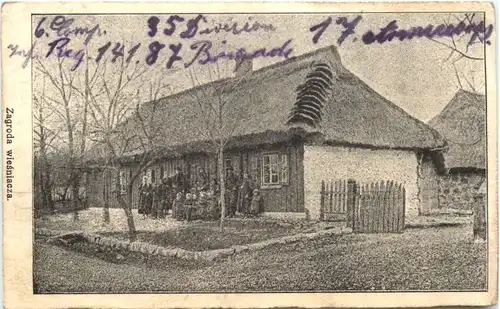 6. Comp. 35 Division 17. Armee
Inf Reg 141. 87 Brigade
Zagroda wieśniacza.